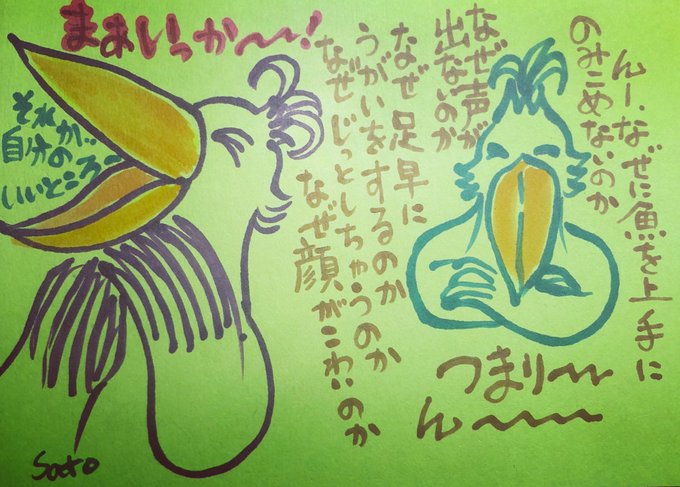 んー、なぜに魚を上手に
のみこめないのか
なぜ声が
出ないのか
なぜ 足早に
うがいをするのか
なぜ じっとしちゃうのか
なぜ顔がこわいのか
つまり〜〜
ん〜〜〜
まあいっか〜〜!
それが..
自分の
いいところ〜
Sato